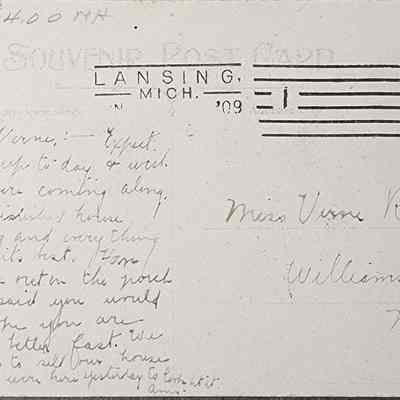 4.00 
SOUVENIR POST CARD
LANSING,
MICH.
'09
1
Verne, :— Expect
up to day & well
are coming along.
finished house
and everything
its best. Tom
out on the porch
said you would
you are
better fast. We
to sell our house
were here yesterday to look at it
Miss Verne R
Williams